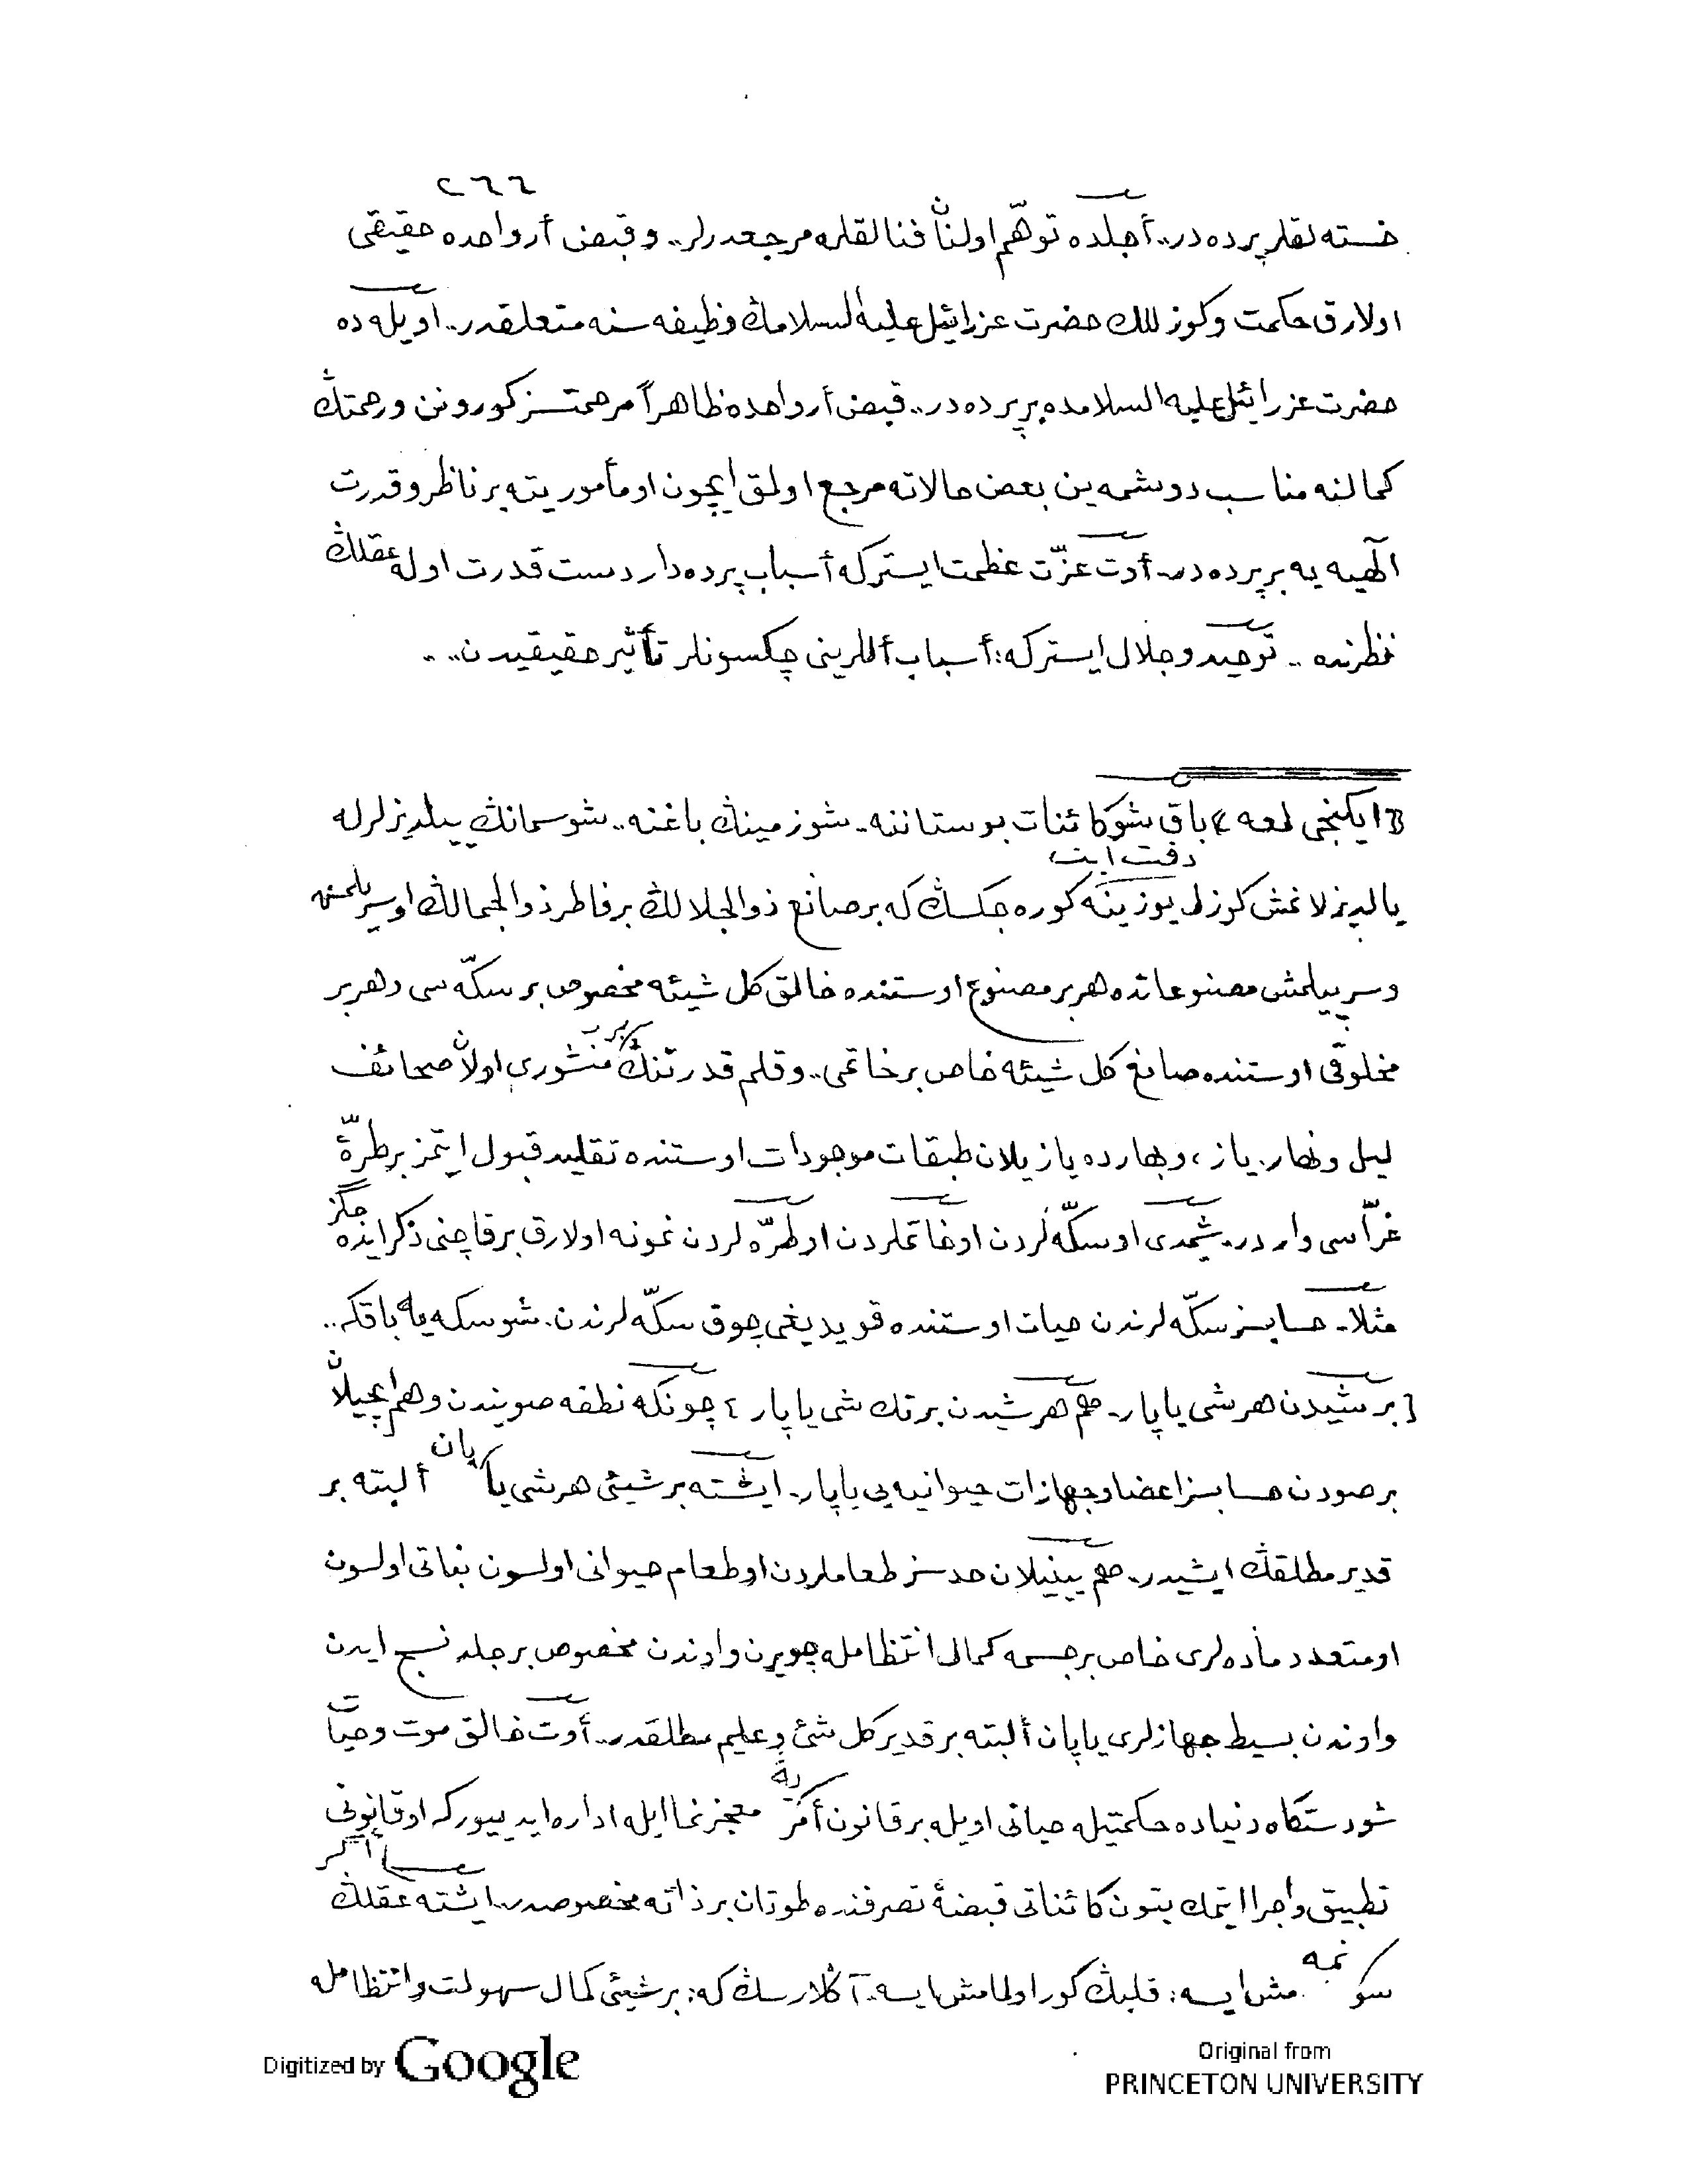 ٢٦٦
خسته لقلر پرده در.. أجلده توهّم اولنان فنالقلره مرجعدرلر.. و قبض أرواحده حقيقى
اولارق حكمت و كوزللك حضرت عزرائيل عليه السلامك وظيفه سنه متعلقدر.. اويله ده
حضرت عزرائيل عليه السلامده بر پرده در.. قبض أرواحده ظاهراً مرحمتسز كورونن و رحمتڭ
كمالنه مناسب دوشمه ين بعض حالاته مرجع اولمق ايچون او مأموريته بر ناظر و قدرت
الٓهيه يه بر پرده در. أوت عزّت عظمت ايستركه أسباب پرده دار دست قدرت اوله عقلڭ
نظرنده .. توحيد و جلال ايستركه: أسباب أللرينى چكسونلر تأثير حقيقيدن..
ايكنجى لمعه باق شو كائنات بوستاننه.. شو زمينڭ باغنه.. شو سمانڭ ييلديزلرله
يالديزلانمش كوزل يوزينه دقت ايت كوره جكسڭ كه بر صانع ذوالجلالڭ بر فاطر ذوالجمالڭ او سريلمش
و سرپيلمش مصنوعاتده هر بر مصنوع اوستنده خالق كل شيئه مخصوص بر سكّه سى و هر بر
مخلوقى اوستنده صانع كل شيئه خاص بر خاتمى.. و قلم قدرتنڭ برر منشورى اولان صحائف
ليل و نهار. ياز، و بهارده يازيلان طبقات موجودات اوستنده تقليد قبول ايتمز بر طرّۀ
غرّاسى واردر. شيمدى او سكّه لردن او خاتملردن او طرّه لردن نمونه اولارق بر قاچنى ذكر ايده جگز
مثلا. حسابسز سكّه لرندن حيات اوستنده قويديغى چوق سكّه لرندن. شو سكه يه باقكه..
[ بر شيدن هر شى ياپار. هم هر شيدن بر تك شى ياپار ] چونكه نطفه صويندن و هم ايچيلان
بر صودن حسابسز اعضا و جهازات حيوانيه يى ياپار. ايشته بر شيئى هر شى ياپان ألبته بر
قدير مطلقڭ ايشيدر. هم يينيلان حدسز طعاملردن او طعام حيوانى اولسون نباتى اولسون
او متعدد مادّه لرى خاص بر جسمه كمال انتظامله چويرن و اوندن مخصوص بر جلد نسج ايدن
و اوندن بسيط جهازلرى ياپان ألبته بر قدير كل شئ و عليم مطلقدر.. أوت خالق موت و حيات
شو دستگاه دنياده حكمتيله حياتى اويله بر قانون أمريۀ معجزنما ايله اداره ايدييوركه او قانونى
تطبيق و اجرا ايتمك بتون كائناتى قبضۀ تصرفنده طوتان بر ذاته مخصوصدر. ايشته أگر عقلڭ
سونمه مش ايسه: قلبڭ كور اولمامش ايسه. آڭلارسڭ كه: بر شيئى كمال سهولت و انتظامله
Digitized by Google
Original from
PRINCETON UNIVERSITY